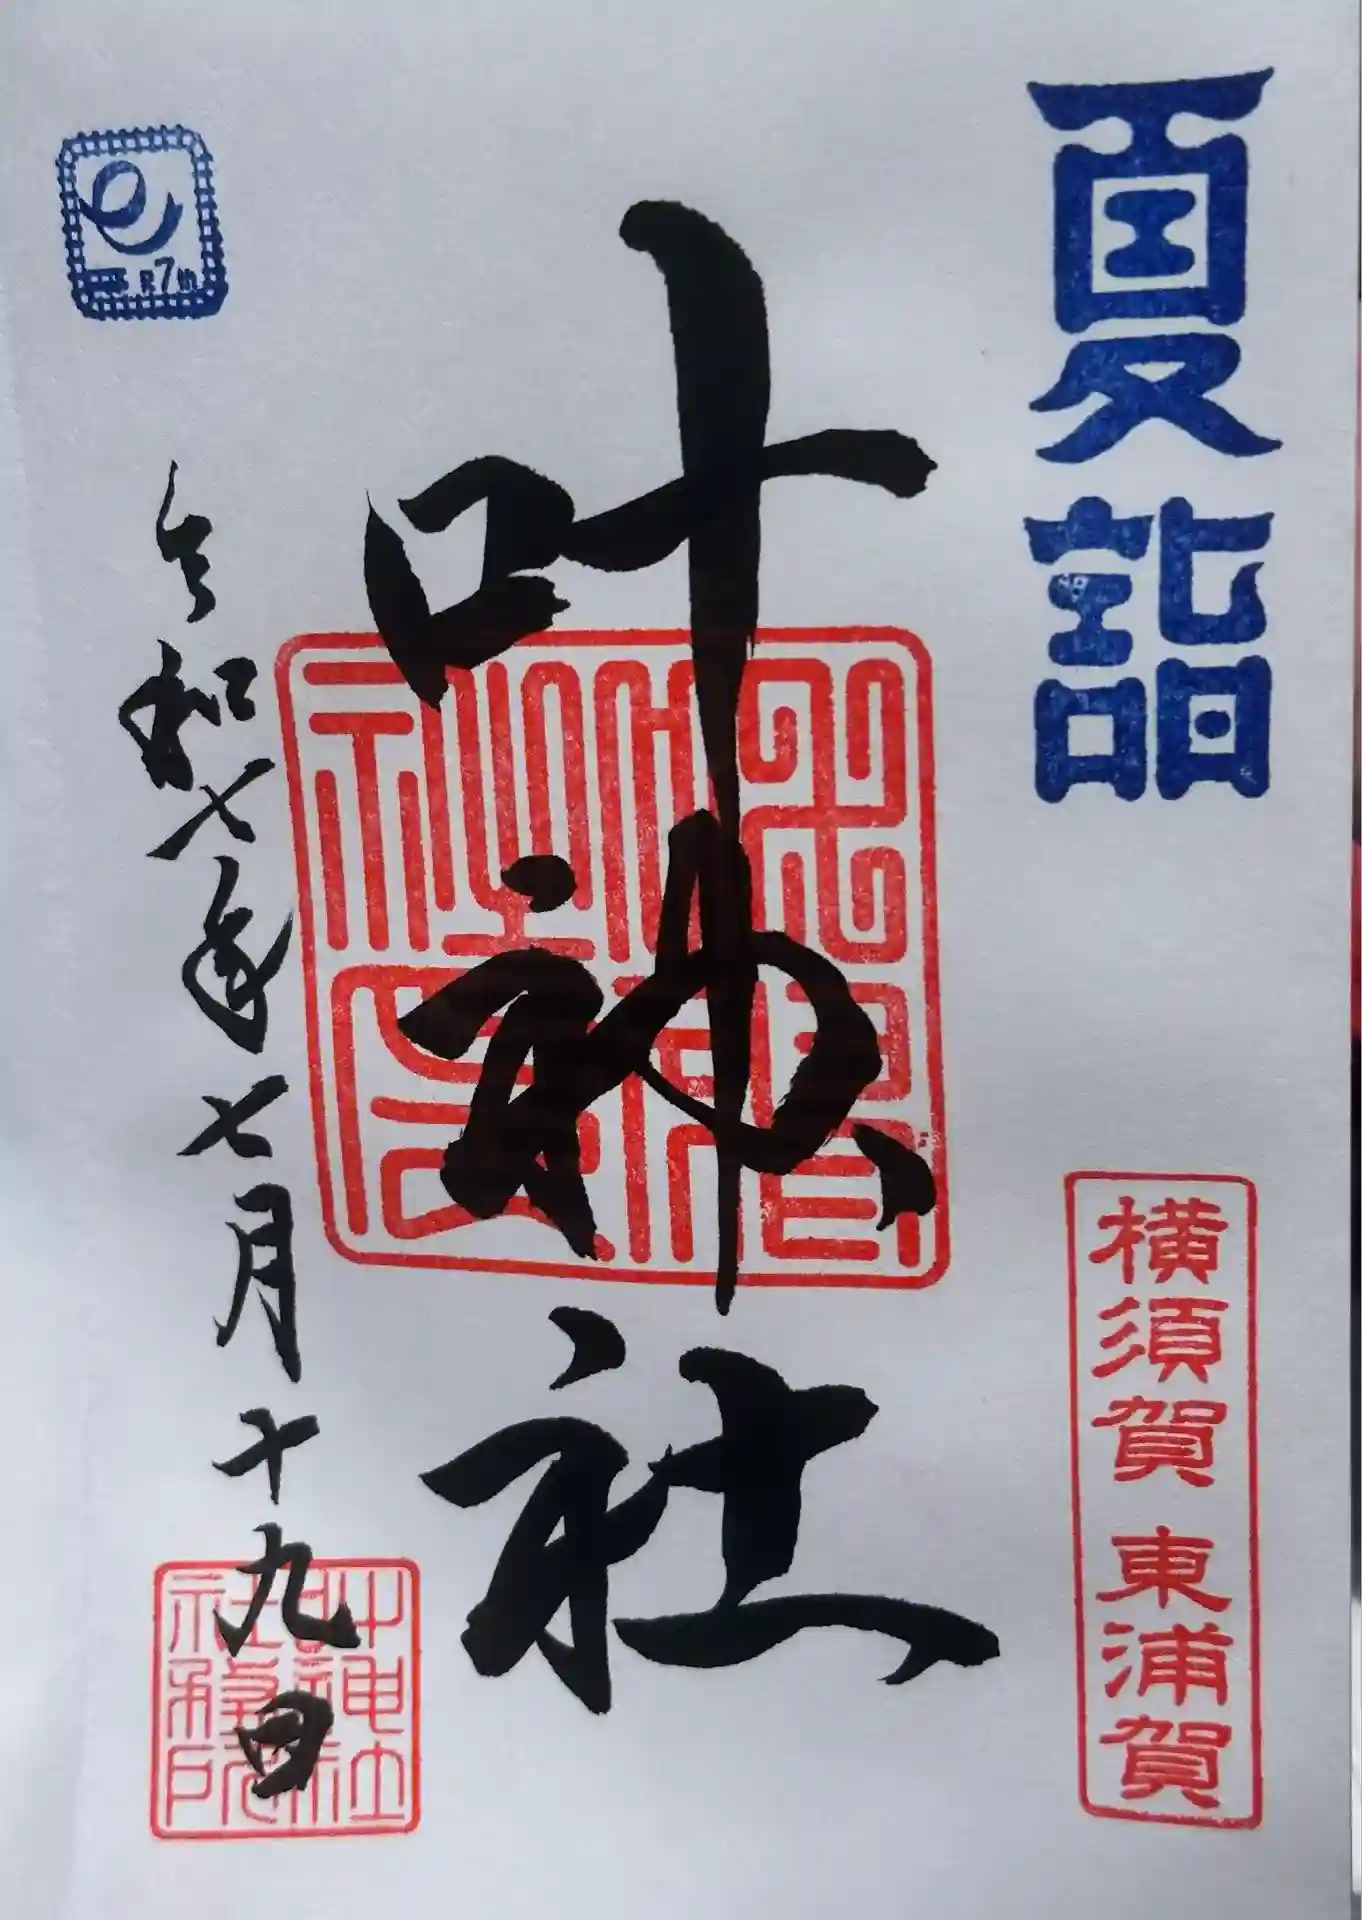 夏詣
横須賀 東浦賀
叶神社
令和七年七月十九日
叶神社
社務所
7th